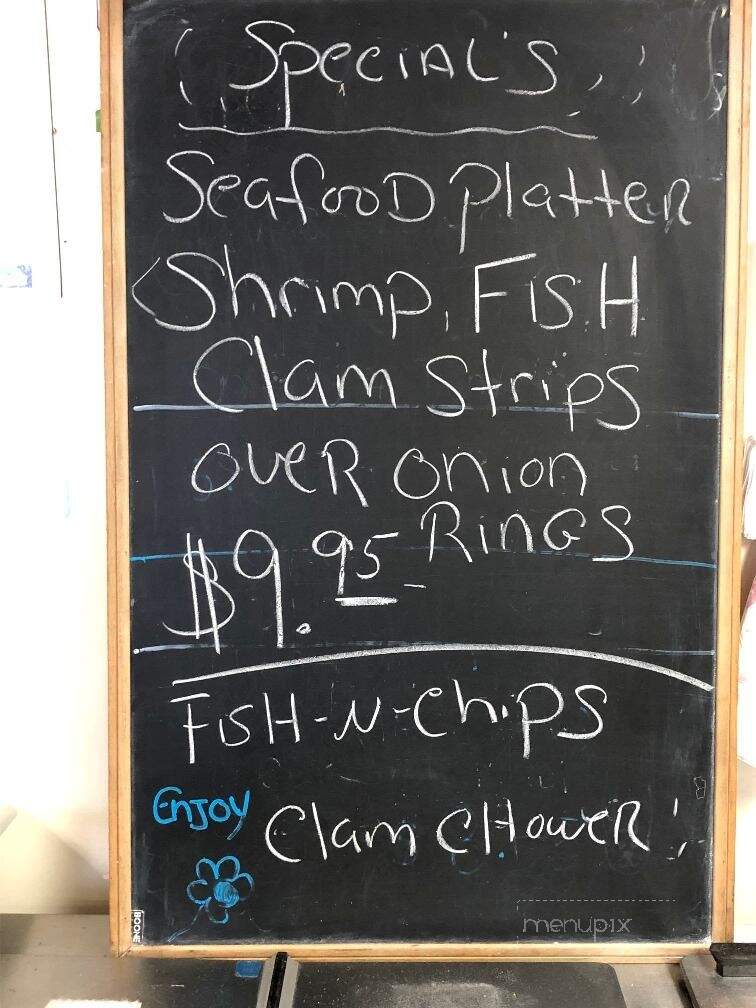 (Special's
Seafood Platter
Shrimp, Fish
Clam Strips
over onion
Rings
$9.95
Fish-N-Chips
Enjoy
Clam Chower!
BOONE
menupix